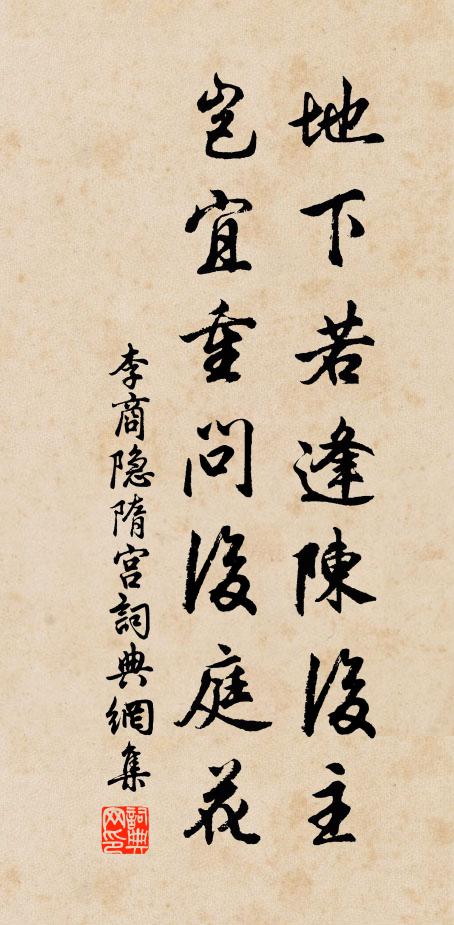 地下若逢陳後主
豈宜重問後庭花
李商隐隋宫詞典網集
詞典网印